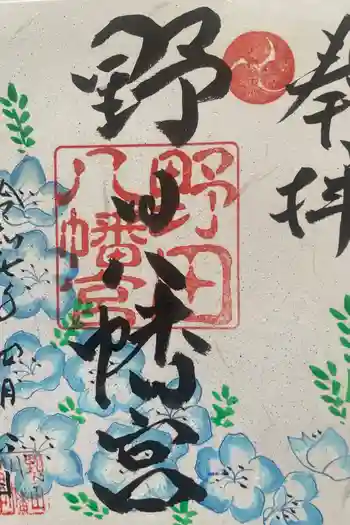 奉拝
野田八幡宮
野田
八幡宮
令和七年四月